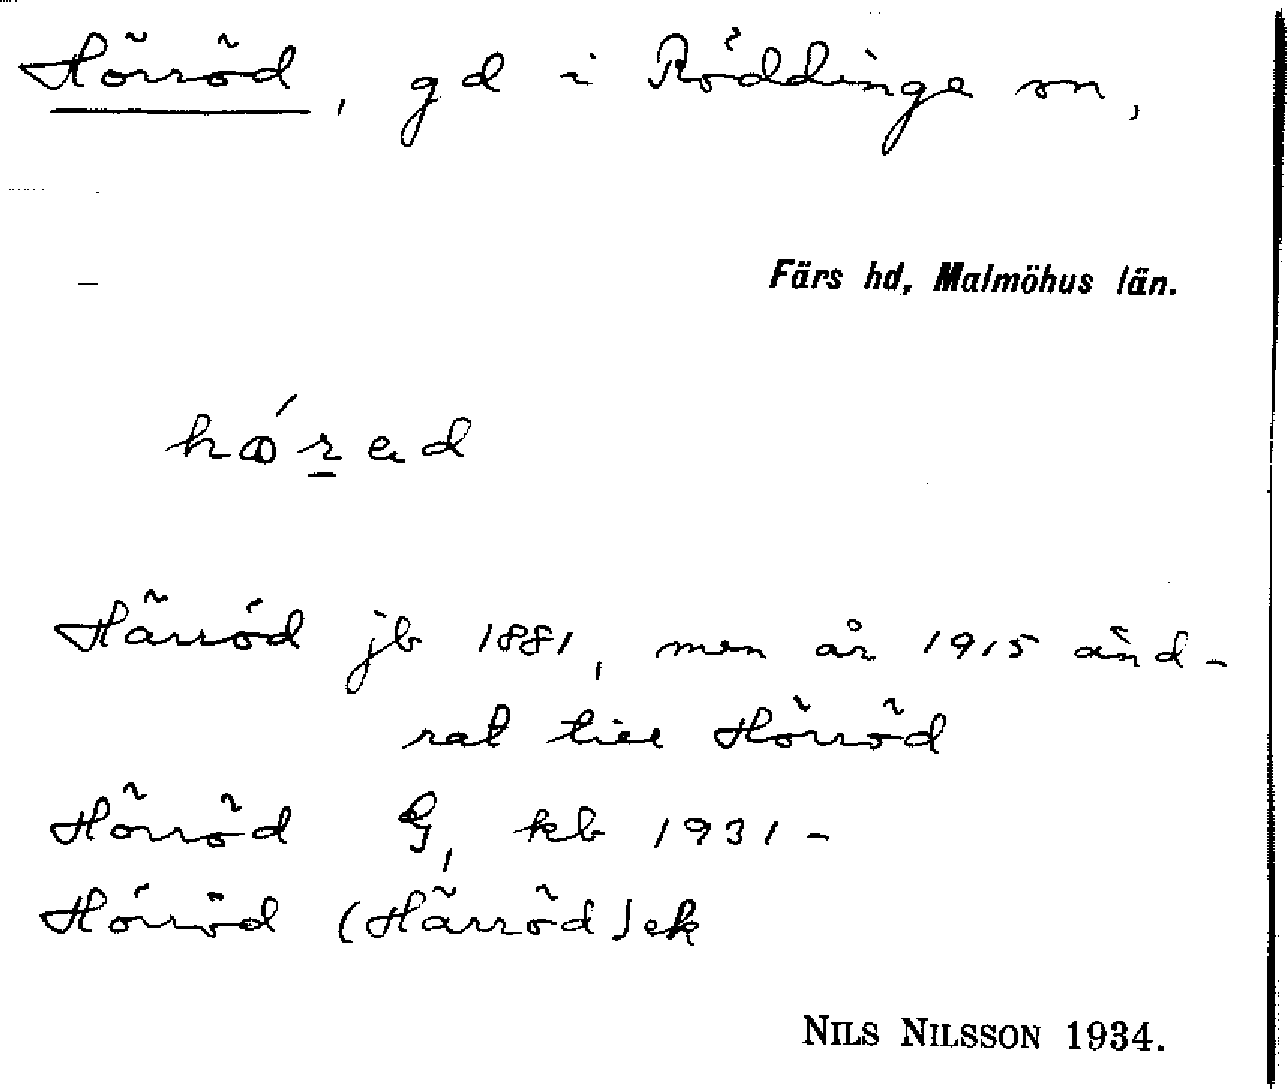 Hörröd, gd i Röddinge sn,
Färs hd, Malmöhus län.
Härröd jb 1881, men år 1915 änd-
rat till Hörröd
Hörröd G, kb 1931-
Hörröd (Härröd) ek
NILS NILSSON 1934.